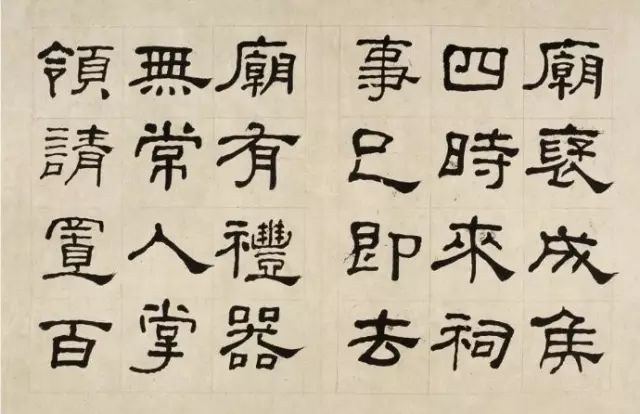 廟褒成侯
四時來祠
事已即去
廟有禮器
無常人掌
領請置百